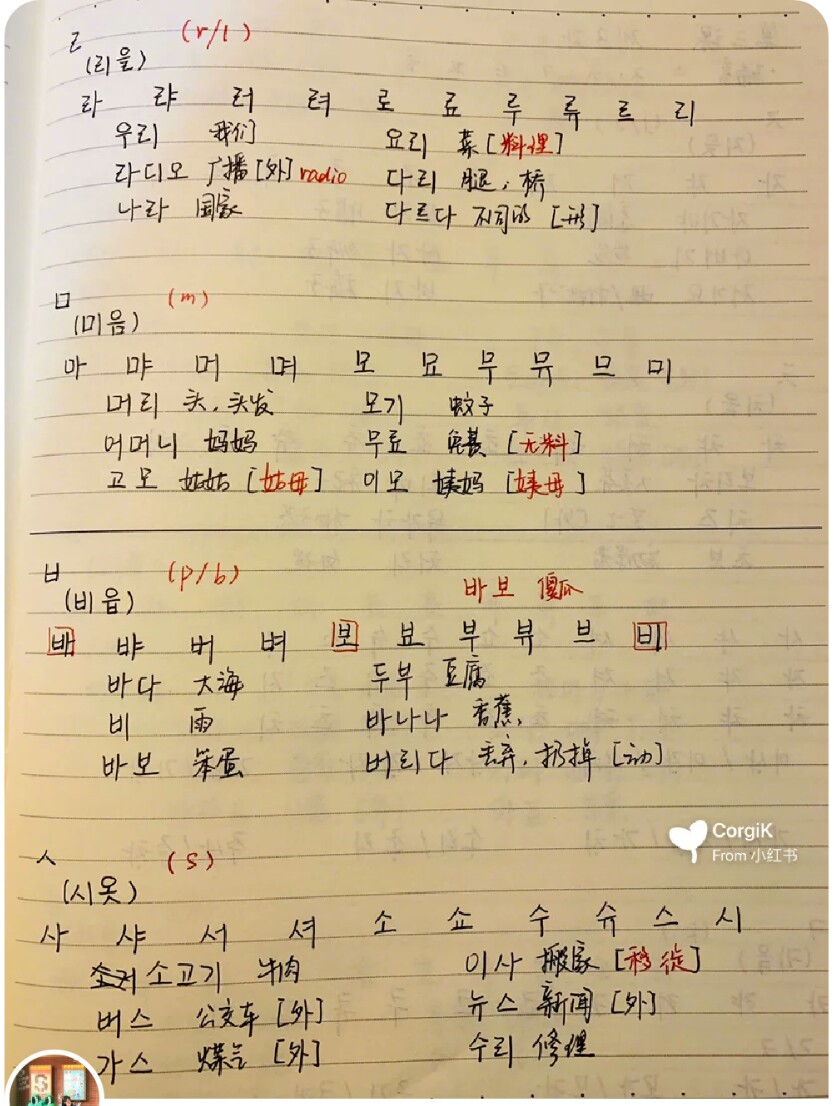 ㄹ (r/l)
(리을)
라 랴 러 려 로 료 루 류 르 리
우리 我们 요리 菜 [料理]
라디오 广播 [外] radio 다리 腿, 桥
나라 国家 다르다 不同的 [形]
ㅁ (m)
(미음)
마 먀 머 며 모 묘 무 뮤 므 미
머리 头, 头发 모기 蚊子
어머니 妈妈 무료 免费 [无料]
고모 姑姑 [姑母] 이모 姨妈 [姨母]
ㅂ (p/b)
(비읍) 바보 傻瓜
바 뱌 버 벼 보 뵤 부 뷰 브 비
바다 大海 두부 豆腐
비 雨 바나나 香蕉
바보 笨蛋 버리다 丢弃, 扔掉 [动]
ㅅ (s)
(시옷)
사 샤 서 셔 소 쇼 수 슈 스 시
소고기 牛肉 이사 搬家 [移徙]
버스 公交车 [外] 뉴스 新闻 [外]
가스 煤气 [外] 수리 修理
CorgiK
From 小红书